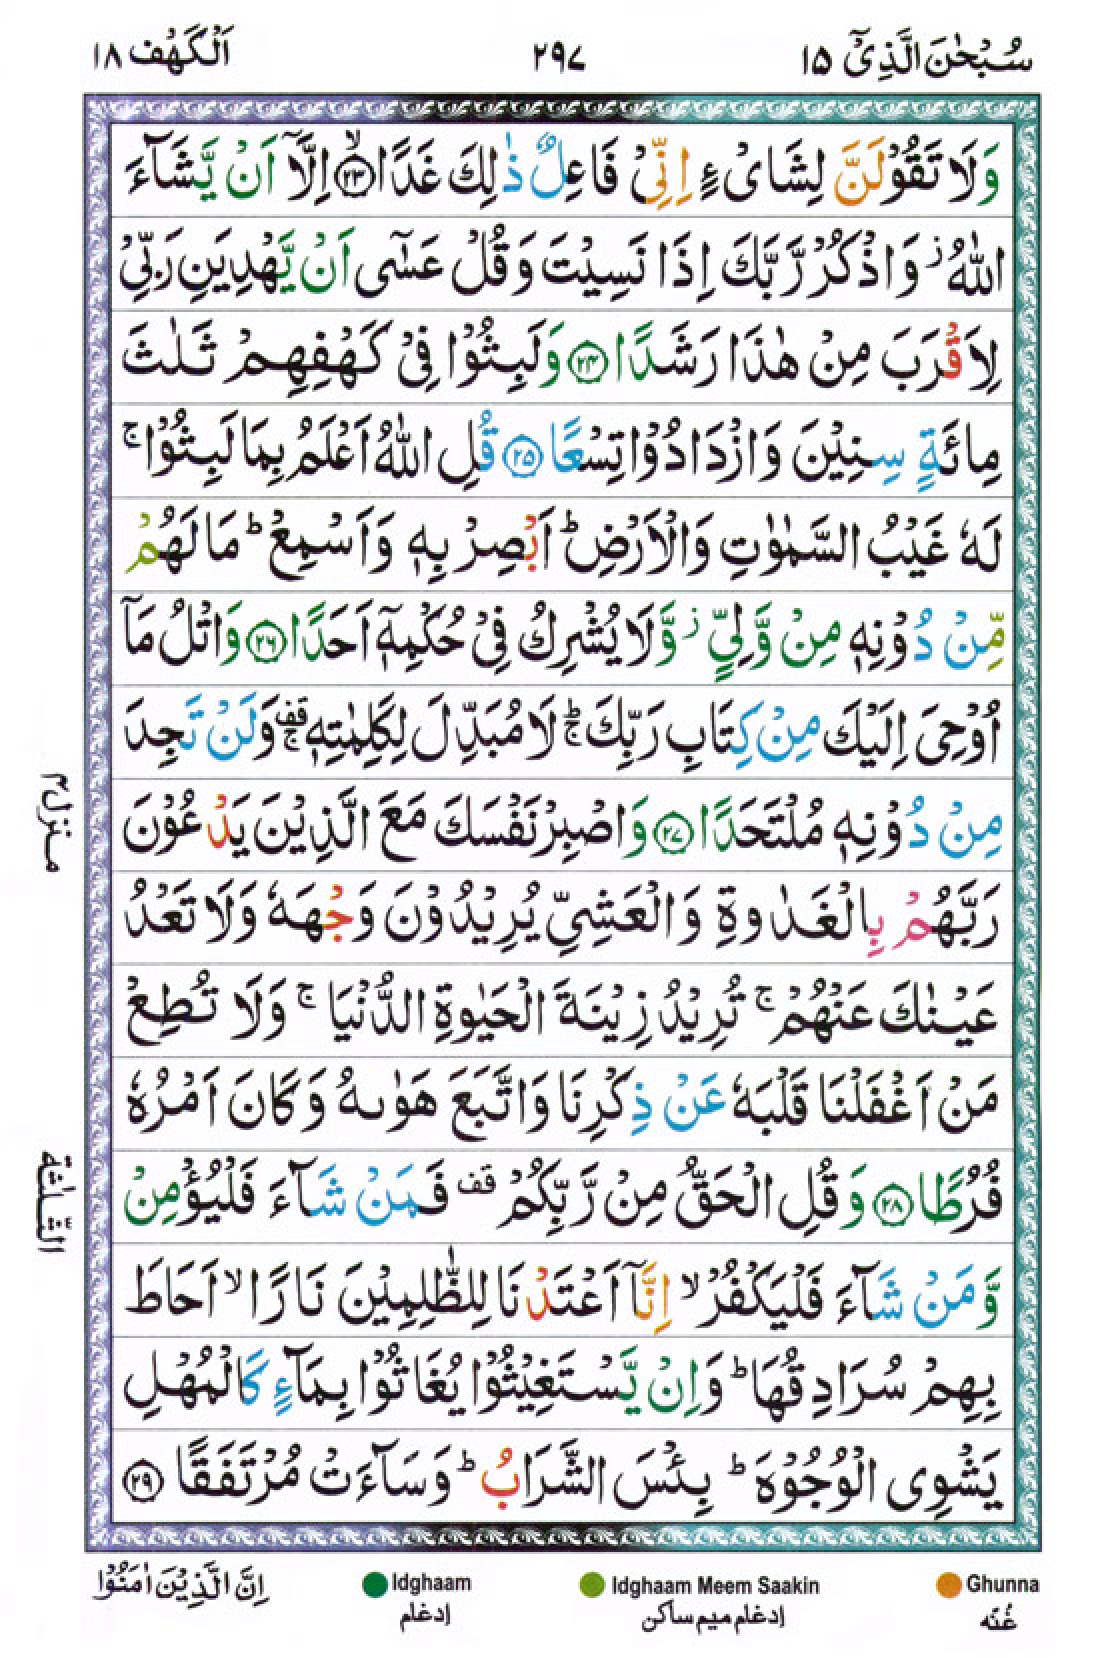 سُبْحٰنَ الَّذِیْۤ ١٥
٢٩٧
اَلْكَهْف ١٨
وَلَا تَقُوْلَنَّ لِشَایْءٍ اِنِّیْ فَاعِلٌ ذٰلِكَ غَدًا ﴿٢٣﴾ اِلَّاۤ اَنْ یَّشَآءَ
اللّٰهُ ز وَاذْكُرْ رَّبَّكَ اِذَا نَسِیْتَ وَقُلْ عَسٰۤی اَنْ یَّهْدِیَنِ رَبِّیْ
لِاَقْرَبَ مِنْ هٰذَا رَشَدًا ﴿٢٤﴾ وَلَبِثُوْا فِیْ كَهْفِهِمْ ثَلٰثَ
مِائَةٍ سِنِیْنَ وَازْدَادُوْا تِسْعًا ﴿٢٥﴾ قُلِ اللّٰهُ اَعْلَمُ بِمَا لَبِثُوْا ۚ
لَهٗ غَیْبُ السَّمٰوٰتِ وَالْاَرْضِ ؕ اَبْصِرْ بِهٖ وَاَسْمِعْ ؕ مَا لَهُمْ
مِّنْ دُوْنِهٖ مِنْ وَّلِیٍّ ز وَّلَا یُشْرِكُ فِیْ حُكْمِهٖۤ اَحَدًا ﴿٢٦﴾ وَاتْلُ مَاۤ
اُوْحِیَ اِلَیْكَ مِنْ كِتَابِ رَبِّكَ ؕۚ لَا مُبَدِّلَ لِكَلِمٰتِهٖ قف ۚ وَلَنْ تَجِدَ
مِنْ دُوْنِهٖ مُلْتَحَدًا ﴿٢٧﴾ وَاصْبِرْ نَفْسَكَ مَعَ الَّذِیْنَ یَدْعُوْنَ
رَبَّهُمْ بِالْغَدٰوةِ وَالْعَشِیِّ یُرِیْدُوْنَ وَجْهَهٗ وَلَا تَعْدُ
عَیْنٰكَ عَنْهُمْ ۚ تُرِیْدُ زِیْنَةَ الْحَیٰوةِ الدُّنْیَا ۚ وَلَا تُطِعْ
مَنْ اَغْفَلْنَا قَلْبَهٗ عَنْ ذِكْرِنَا وَاتَّبَعَ هَوٰىهُ وَكَانَ اَمْرُهٗ
فُرُطًا ﴿٢٨﴾ وَقُلِ الْحَقُّ مِنْ رَّبِّكُمْ قف فَمَنْ شَآءَ فَلْیُؤْمِنْ
وَّمَنْ شَآءَ فَلْیَكْفُرْ ۙ اِنَّاۤ اَعْتَدْنَا لِلظّٰلِمِیْنَ نَارًا ۙ اَحَاطَ
بِهِمْ سُرَادِقُهَا ؕ وَاِنْ یَّسْتَغِیْثُوْا یُغَاثُوْا بِمَآءٍ كَالْمُهْلِ
یَشْوِی الْوُجُوْهَ ؕ بِئْسَ الشَّرَابُ ؕ وَسَآءَتْ مُرْتَفَقًا ﴿٢٩﴾
منزل ٤
الثَّلٰثَة
Ghunna
غُنّه
Idghaam Meem Saakin
إدغام میم ساكن
Idghaam
إدغام
اِنَّ الَّذِیْنَ اٰمَنُوْا